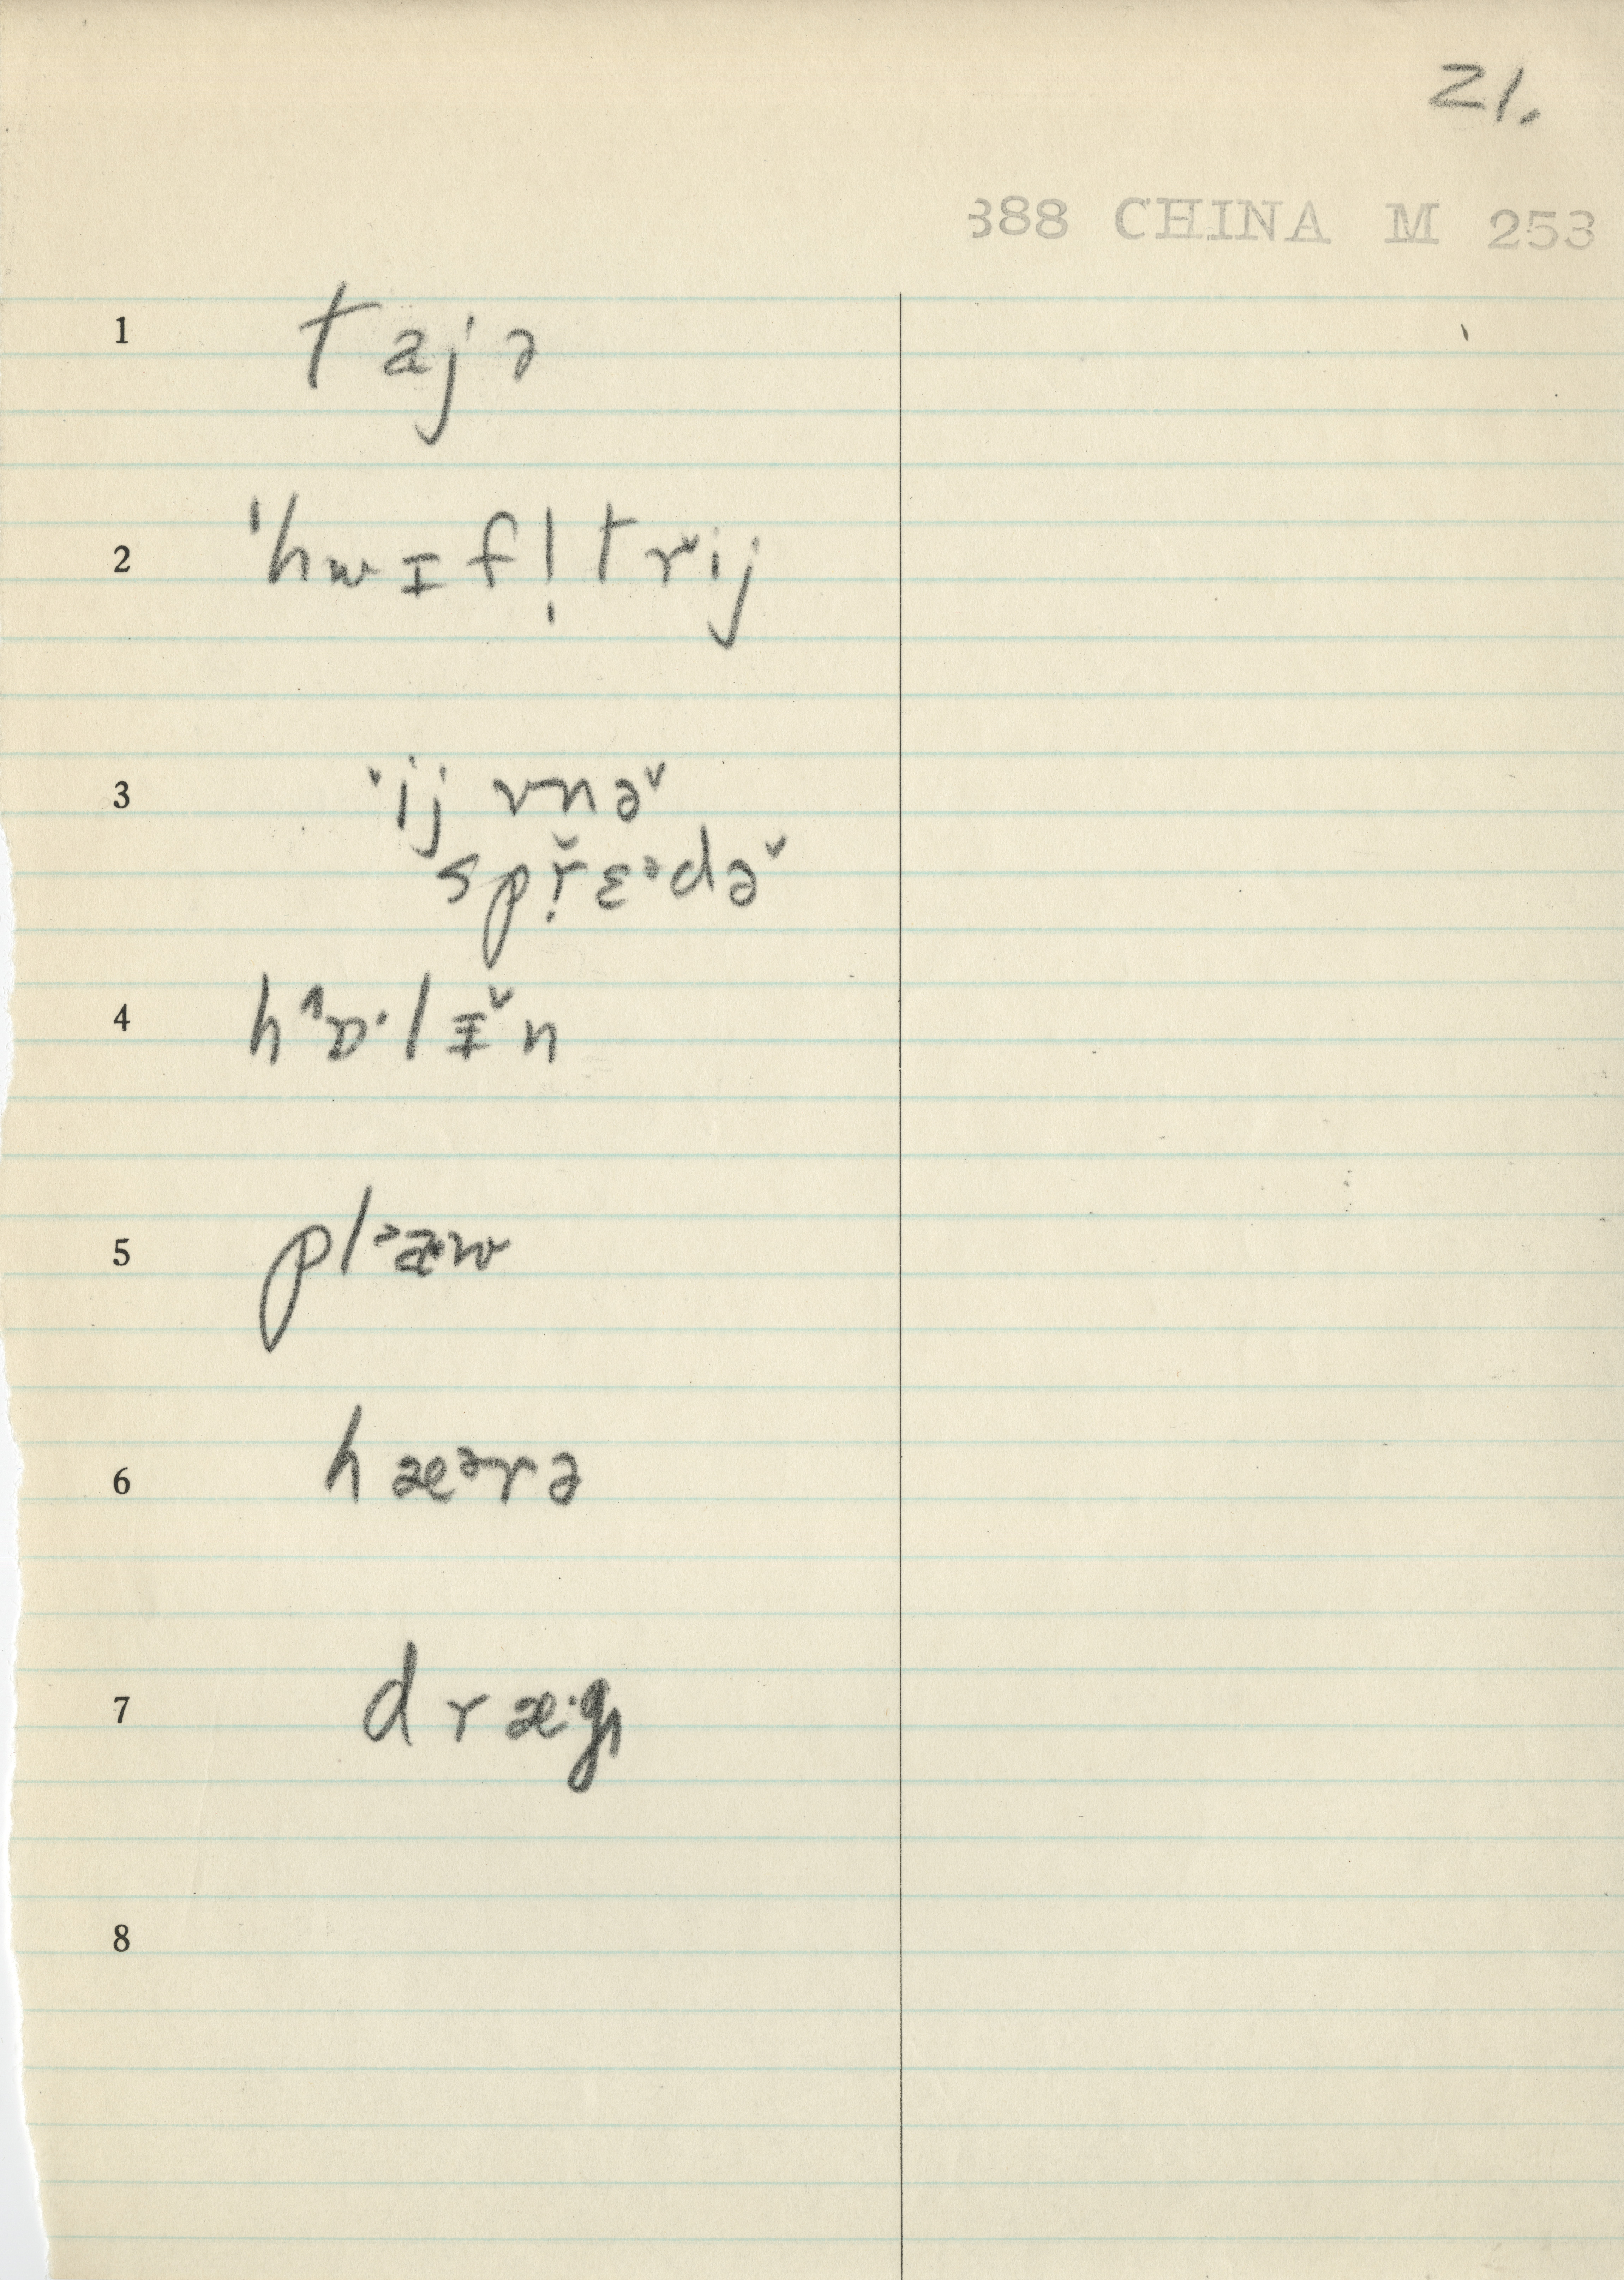 21.
388 CHINA M 253
1 tajə
2 ˈhwɪfl̩trij
3 ˈij vnə˅
spṛ̌ɛᵊdə˅
4 hˆɒ·lɪ˅n
5 plᵊæw
6 hæᵊrə
7 dræ·g
8